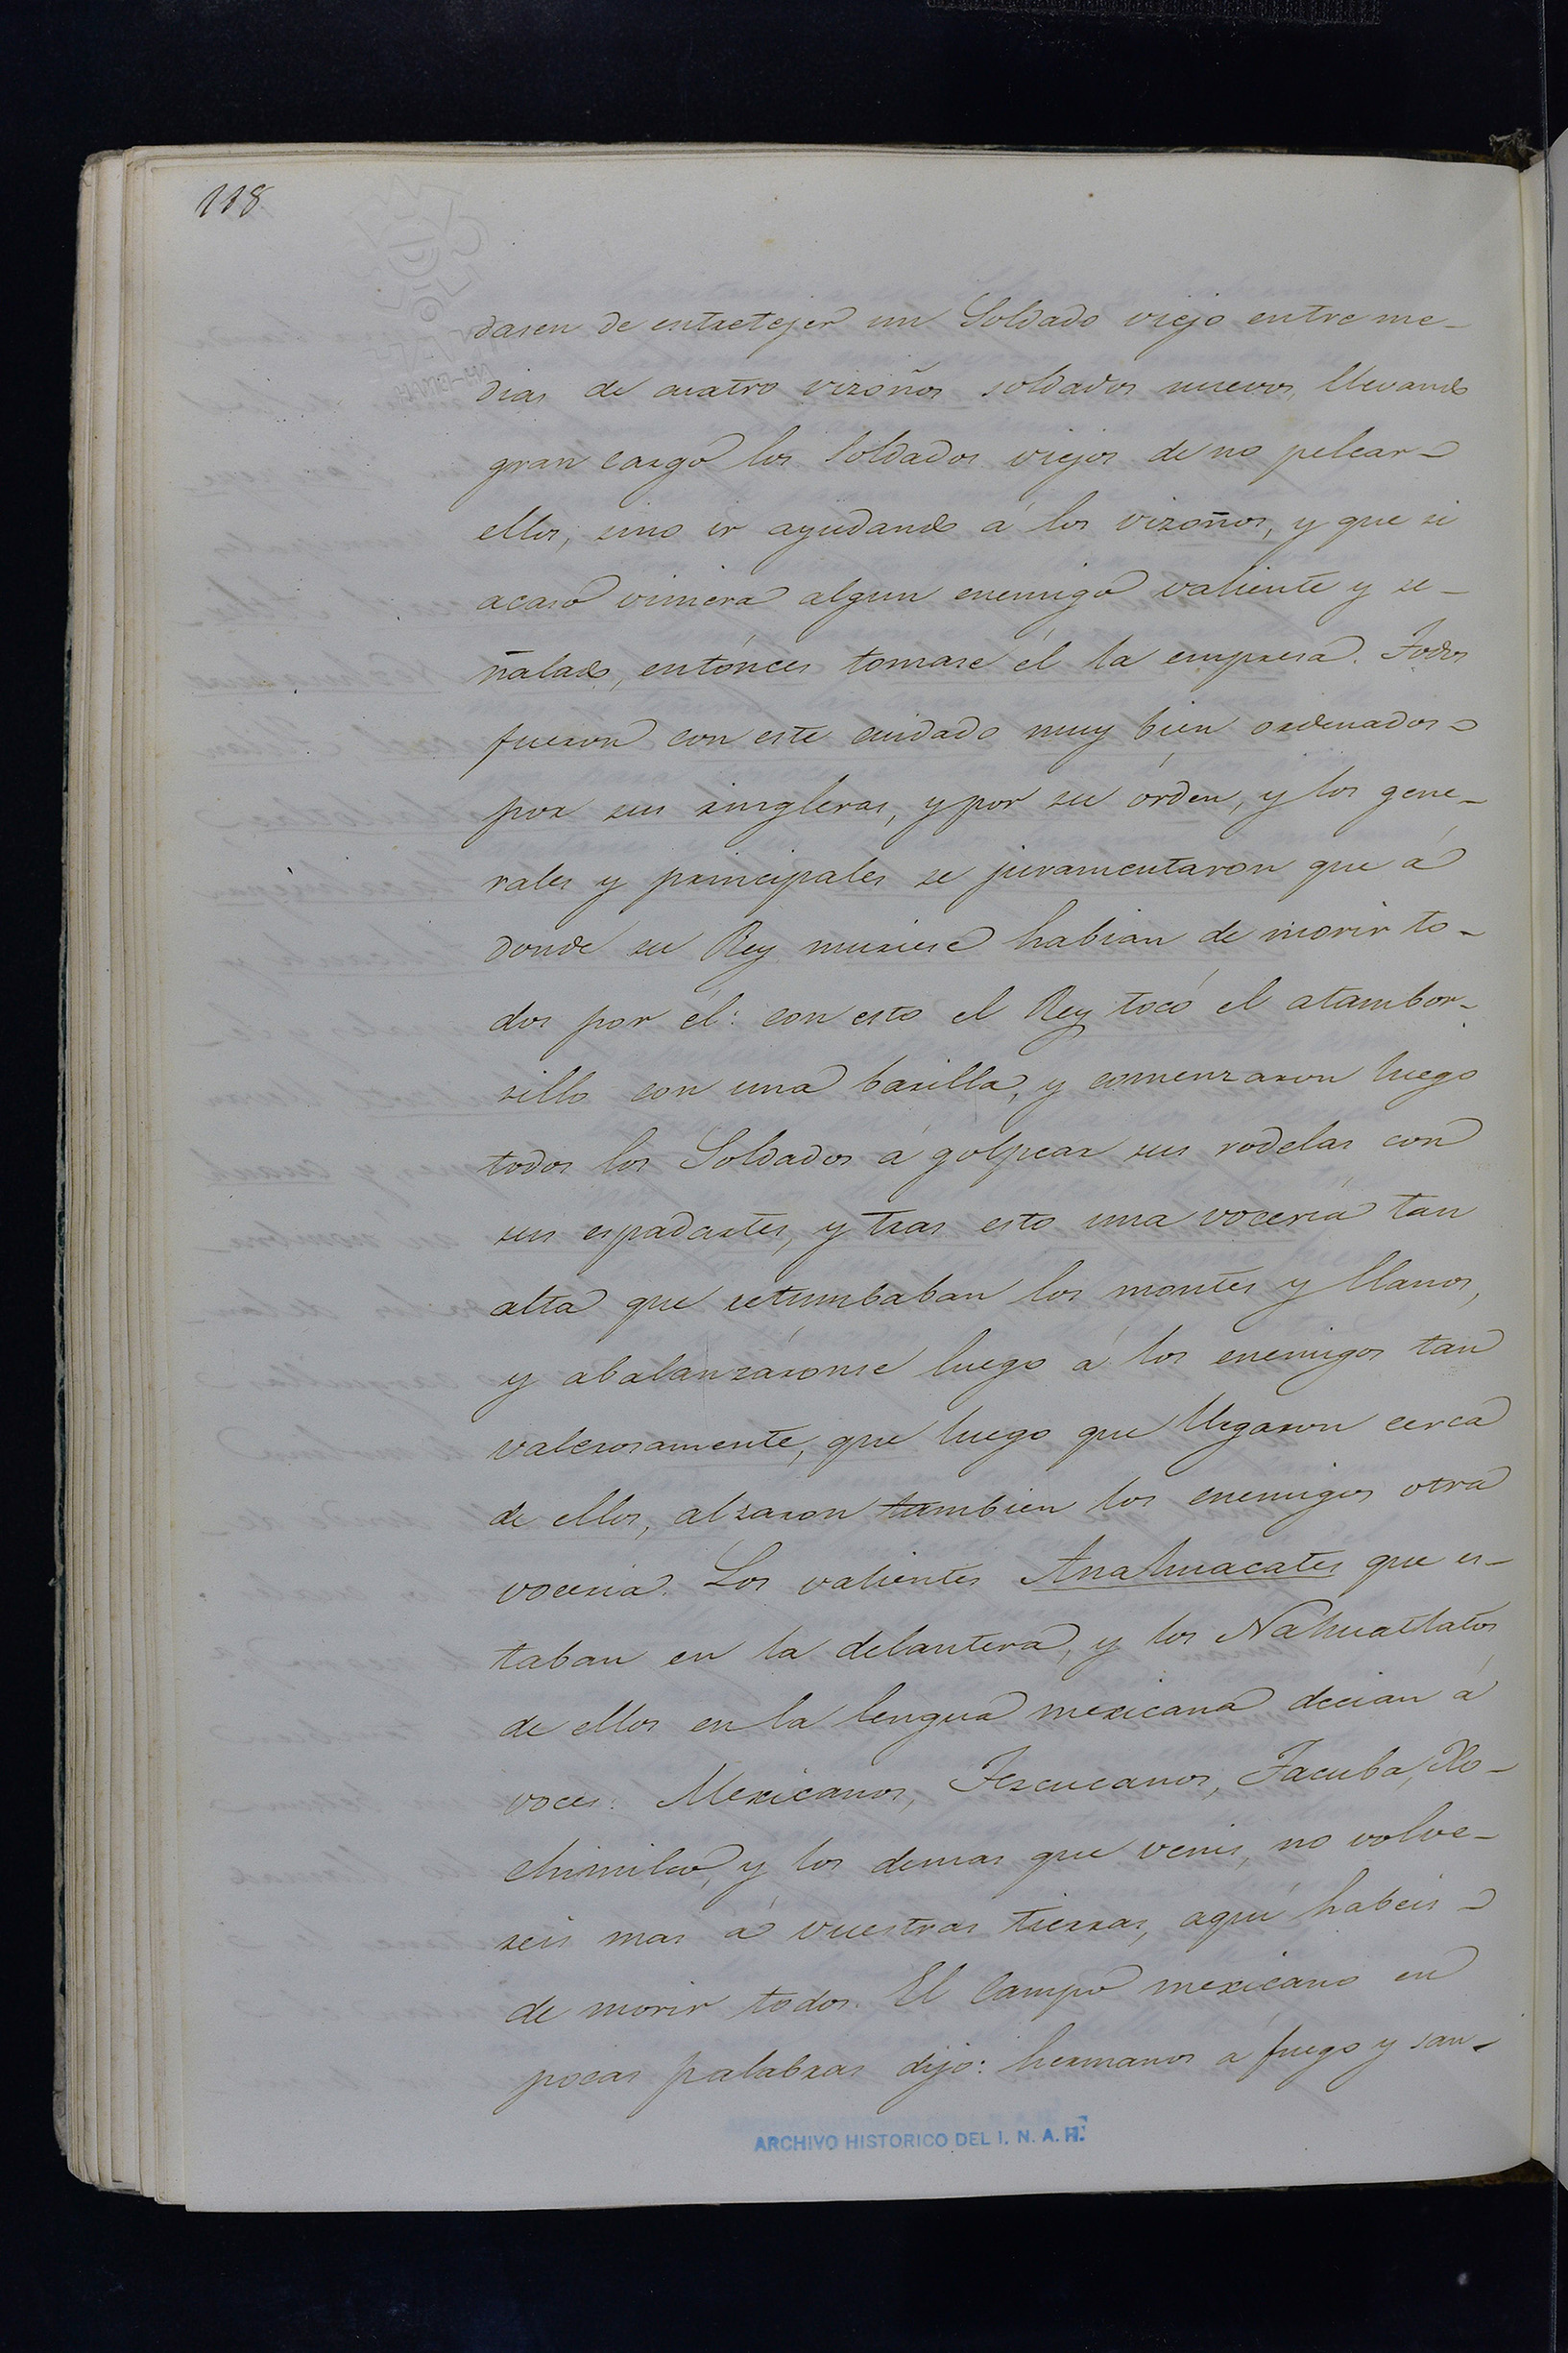 118
dasen de entretejer un Soldado viejo entre me-
dias de cuatro vizoños soldados nuevos, llevando
gran cargo los Soldados viejos de no pelear
ellos, sino ir ayudando á los vizoños, y que si
acaso viniera algun enemigo valiente y se-
ñalado, entónces tomase él la empresa. Todos
fueron con este cuidado muy bien ordenados
por sus ringleras, y por su órden, y los gene-
rales y principales se juramentaron que á
donde su Rey muriese habian de morir to-
dos por él: con esto el Rey tocó el atambor-
sillo con una barilla, y comenzaron luego
todos los Soldados á golpear sus rodelas con
sus espadartes, y tras esto una vocería tan
alta que retumbaban los montes y llanos,
y abalanzáronse luego á los enemigos tan
valerosamente, que luego que llegaron cerca
de ellos, alzaron tambien los enemigos otra
voceria. Los valientes Anahuacates que es-
taban en la delantera, y los Nahuatlatos
de ellos en la lengua mexicana decian á
voces: Mexicanos, Tezcucanos, Tacuba, Xo-
chimilco, y los demas que venis, no volve-
reis mas á vuestras tierras, aquí habeis
de morir todos. El Campo mexicano en
pocas palabras dijo: hermanos á fuego y san-
ARCHIVO HISTORICO DEL I. N. A. H.